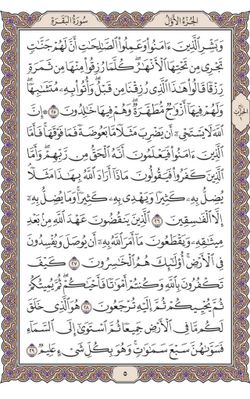 الجزء الأول
سورة البقرة
وَبَشِّرِ الَّذِينَ ءَامَنُوا وَعَمِلُوا الصَّالِحَاتِ أَنَّ لَهُمْ جَنَّاتٍ
تَجْرِي مِن تَحْتِهَا الْأَنْهَارُ كُلَّمَا رُزِقُوا مِنْهَا مِن ثَمَرَةٍ
رِّزْقًا قَالُوا هَٰذَا الَّذِي رُزِقْنَا مِن قَبْلُ وَأُتُوا بِهِ مُتَشَابِهًا
وَلَهُمْ فِيهَا أَزْوَاجٌ مُّطَهَّرَةٌ وَهُمْ فِيهَا خَالِدُونَ ٢٥ إِنَّ
اللَّهَ لَا يَسْتَحْيِ أَن يَضْرِبَ مَثَلًا مَّا بَعُوضَةً فَمَا فَوْقَهَا فَأَمَّا
الَّذِينَ ءَامَنُوا فَيَعْلَمُونَ أَنَّهُ الْحَقُّ مِن رَّبِّهِمْ وَأَمَّا
الَّذِينَ كَفَرُوا فَيَقُولُونَ مَاذَا أَرَادَ اللَّهُ بِهَٰذَا مَثَلًا
يُضِلُّ بِهِ كَثِيرًا وَيَهْدِي بِهِ كَثِيرًا وَمَا يُضِلُّ بِهِ
إِلَّا الْفَاسِقِينَ ٢٦ الَّذِينَ يَنقُضُونَ عَهْدَ اللَّهِ مِن بَعْدِ
مِيثَاقِهِ وَيَقْطَعُونَ مَا أَمَرَ اللَّهُ بِهِ أَن يُوصَلَ وَيُفْسِدُونَ
فِي الْأَرْضِ أُولَٰئِكَ هُمُ الْخَاسِرُونَ ٢٧ كَيْفَ
تَكْفُرُونَ بِاللَّهِ وَكُنتُمْ أَمْوَاتًا فَأَحْيَاكُمْ ثُمَّ يُمِيتُكُمْ
ثُمَّ يُحْيِيكُمْ ثُمَّ إِلَيْهِ تُرْجَعُونَ ٢٨ هُوَ الَّذِي خَلَقَ
لَكُم مَّا فِي الْأَرْضِ جَمِيعًا ثُمَّ اسْتَوَىٰ إِلَى السَّمَاءِ
فَسَوَّاهُنَّ سَبْعَ سَمَاوَاتٍ وَهُوَ بِكُلِّ شَيْءٍ عَلِيمٌ ٢٩
٥